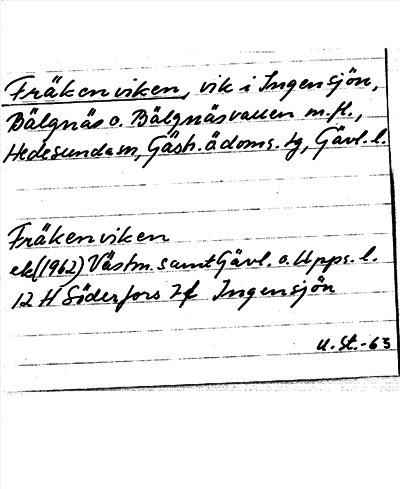 Fräkenviken, vik i Ingensjön,
Bälgnäs o. Bälgnäsvallen m.fl.,
Hedesunda sn, Gästr. ö. doms. tg, Gävl. l.
Fräkenviken
ek (1962) Västm. samt Gävl. o. Upps. l.
12 H Söderfors 7f Ingensjön
U. St. -63